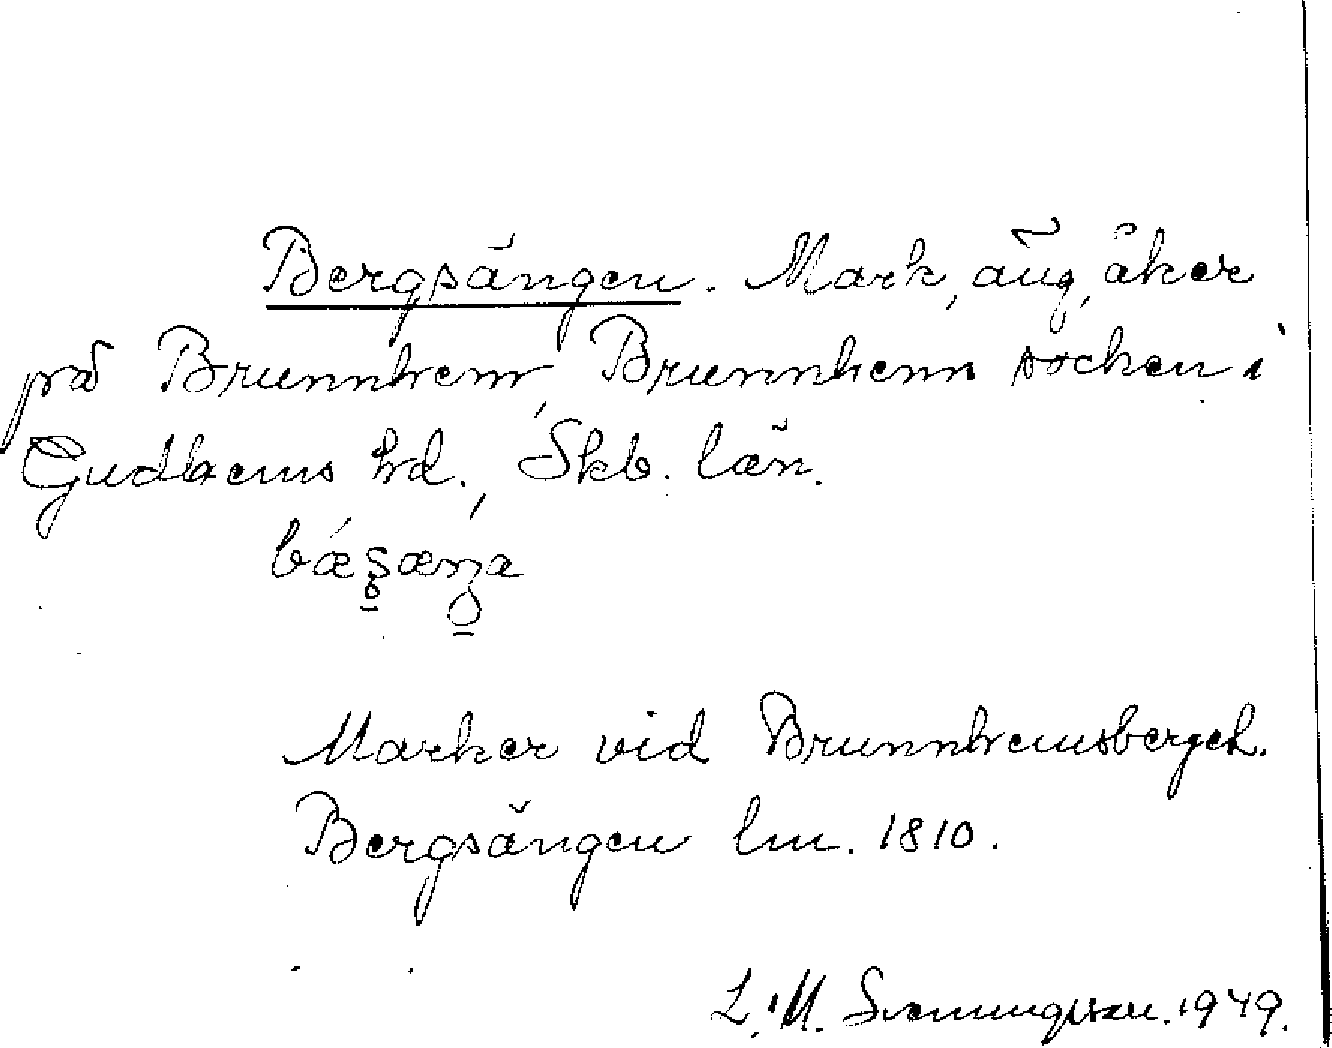 Bergsängen. Mark, äng, åker
på Brunnhem, Brunnhem socken i
Gudhems hd., Skb. län.
Marker vid Brunnhemsberget.
Bergsängen lm. 1810.
L. M. Svenungsson. 1949.